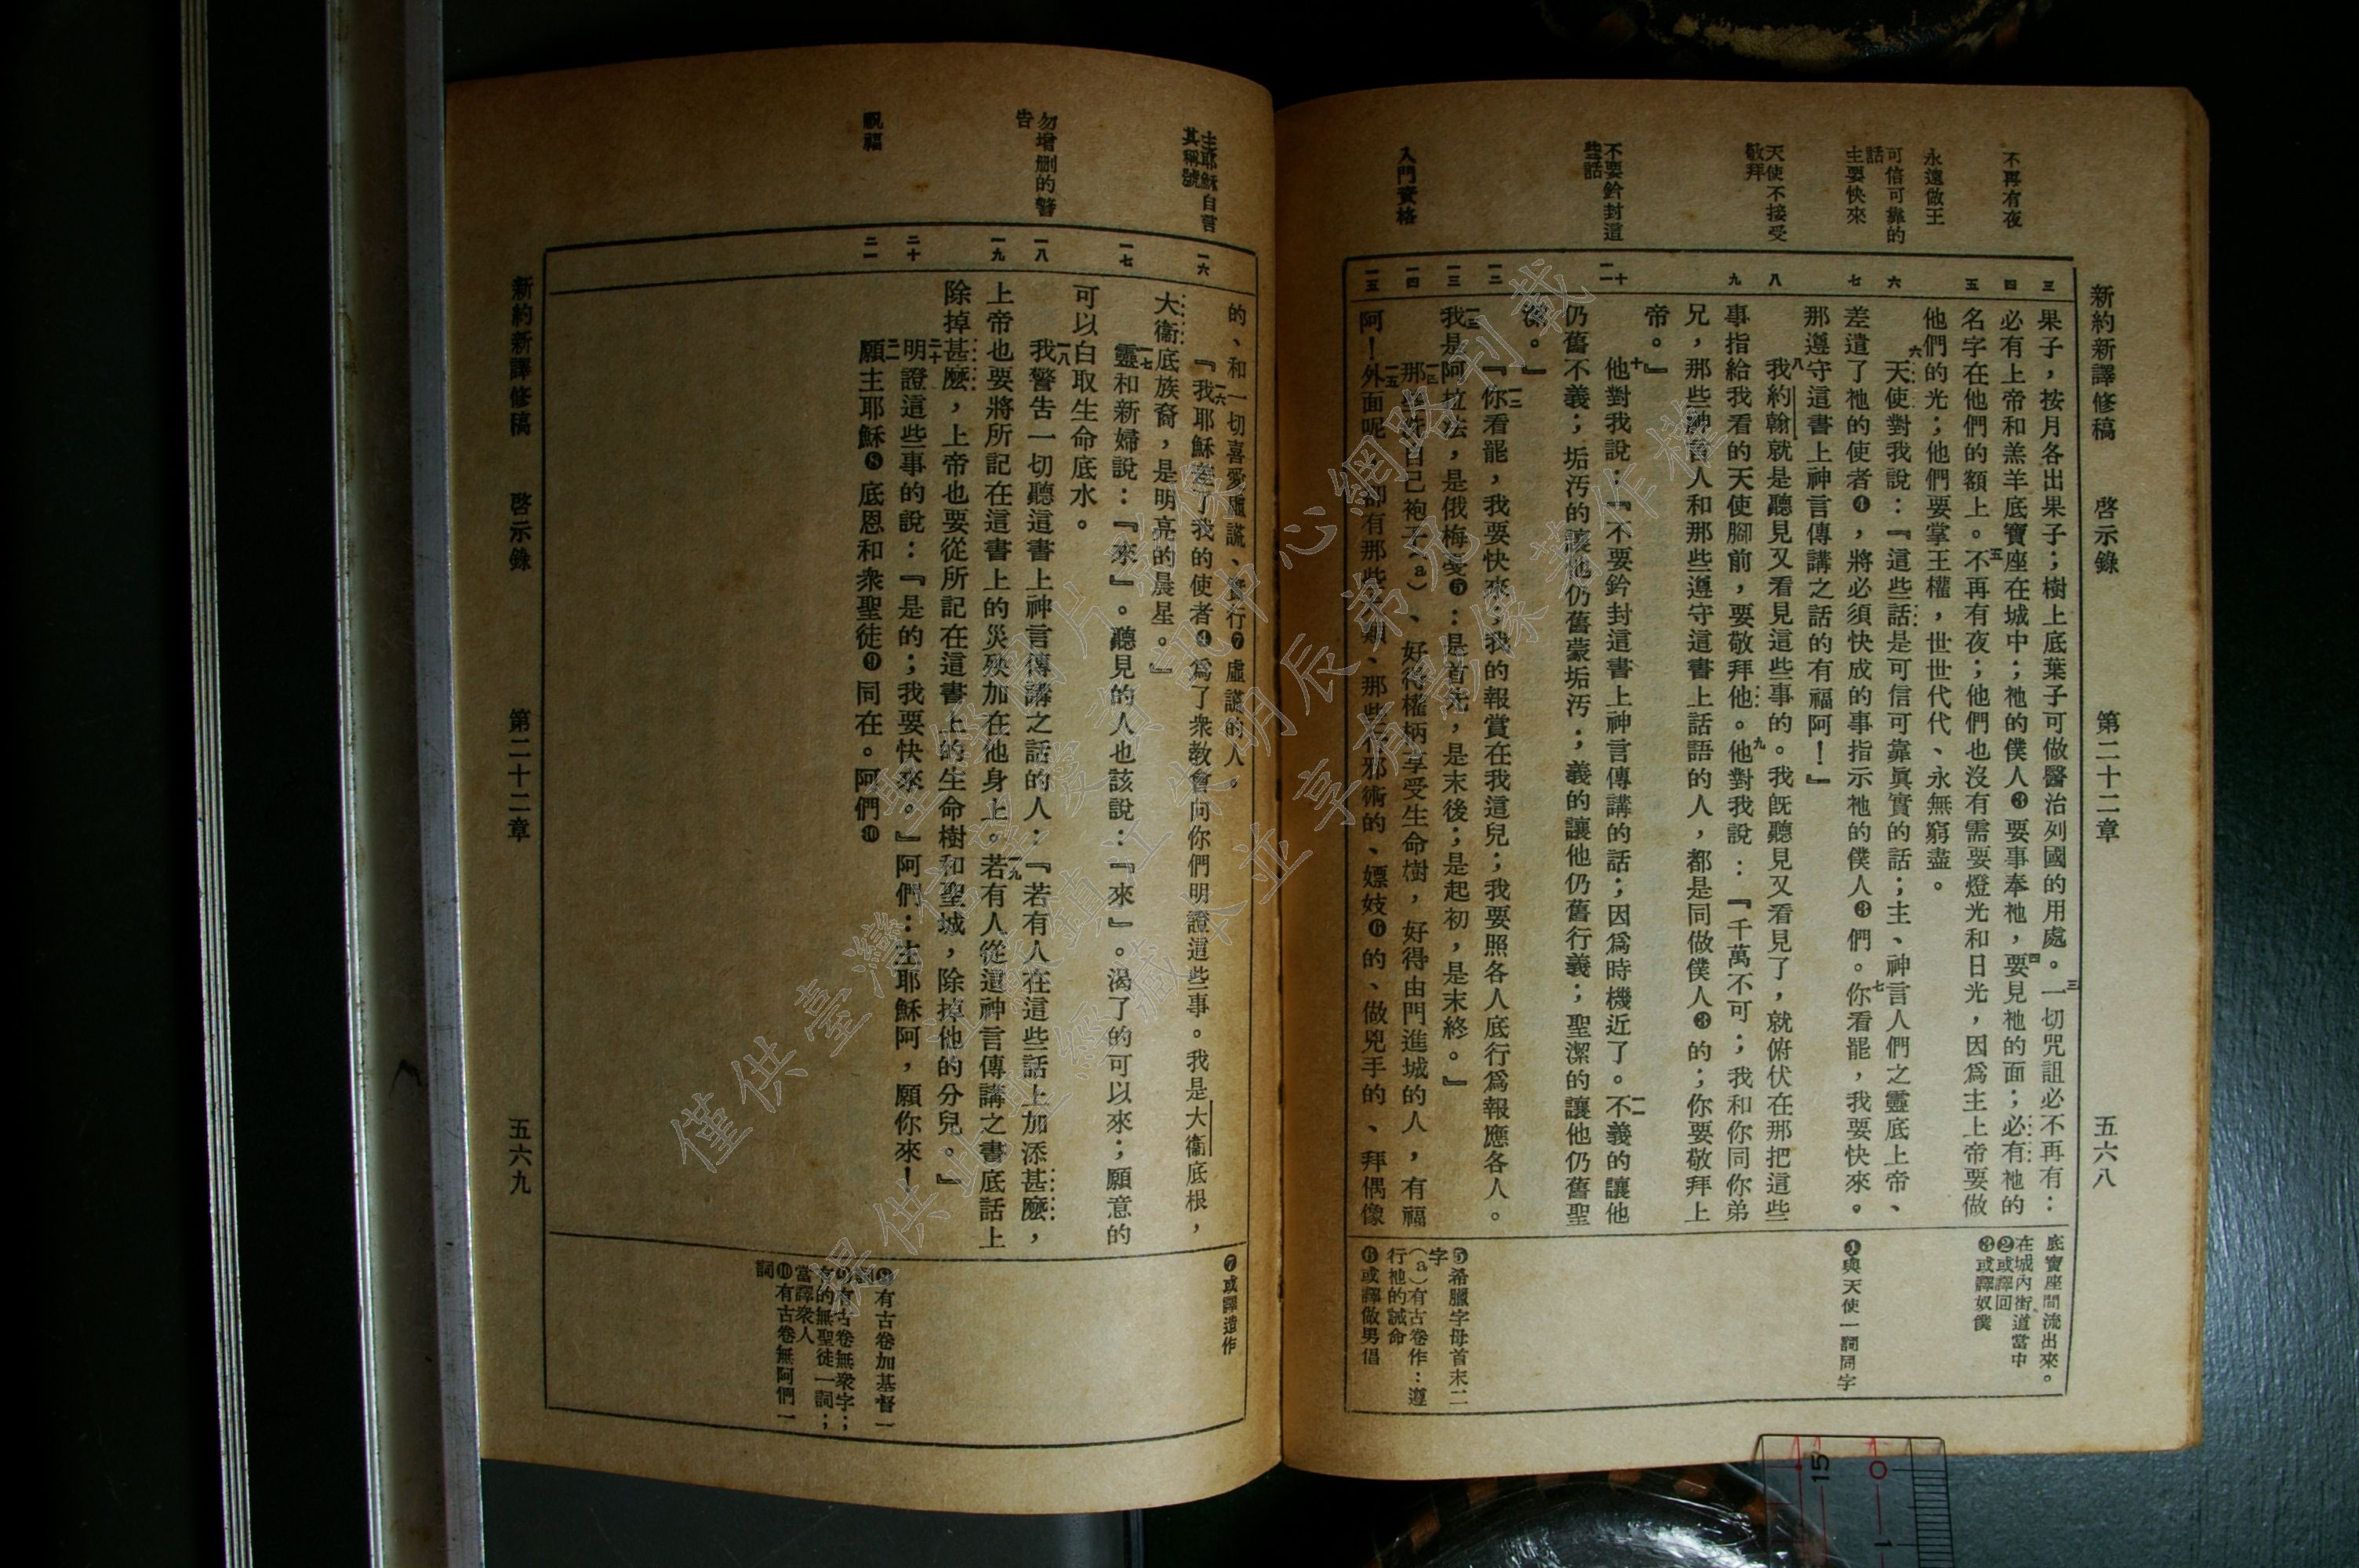 新約新譯修稿　啓示錄　第二十二章　五六八
不再有夜
永遠做王
可信可靠的
話
主要快來
天使不接受
敬拜
不要鈐封這
些話
入門資格
三
四
五
六
七
八
九
十
一一
一二
一三
一四
一五
果子，按月各出果子；樹上底葉子可做醫治列國的用處。三一切咒詛必不再有：
必有上帝和羔羊底寶座在城中；祂的僕人❸要事奉祂，四要見祂的面；必有祂的
名字在他們的額上。五不再有夜；他們也沒有需要燈光和日光，因爲主上帝要做
他們的光；他們要掌王權，世世代代、永無窮盡。
六天使對我說：『這些話是可信可靠眞實的話；主、神言人們之靈底上帝、
差遣了祂的使者❹，將必須快成的事指示祂的僕人❸們。七你看罷，我要快來。
那遵守這書上神言傳講之話的有福阿！』
八我約翰就是聽見又看見這些事的。我旣聽見又看見了，就俯伏在那把這些
事指給我看的天使腳前，要敬拜他。九他對我說：『千萬不可；我和你同你弟
兄，那些神言人和那些遵守這書上話語的人，都是同做僕人❸的；你要敬拜上
帝。』
十他對我說：『不要鈐封這書上神言傳講的話；因爲時機近了。一一不義的讓他
仍舊不義；垢污的讓他仍舊蒙垢污；義的讓他仍舊行義；聖潔的讓他仍舊聖
潔。』
一二『你看罷，我要快來；我的報賞在我這兒；我要照各人底行爲報應各人。
一三我是阿拉法，是俄梅戛❺：是首先，是末後；是起初，是末終。』
一四那些 自己袍子（a）、好得權柄享受生命樹，好得由門進城的人，有福
阿！一五外面呢，卻有那些 類、那些行邪術的、嫖妓❻的、做兇手的、拜偶像
底寶座間流出來。
在城內街道當中
❷或譯回
❸或譯奴僕
❹與天使一詞同字
❺希臘字母首末二
字
（a）有古卷作：遵
行祂的誡命
❻或譯做男倡
主耶穌自言
其稱號
勿增删的警
告
祝福
一六
一七
一八
一九
二十
二一
的、和一切喜愛虛謊、實行❼虛謊的人。
一六『我耶穌差了我的使者❹爲了衆教會向你們明證這些事。我是大衞底根，
大衞底族裔，是明亮的晨星。』
一七靈和新婦說：『來』。聽見的人也該說：『來』。渴了的可以來；願意的
可以白取生命底水。
一八我警吿一切聽這書上神言傳講之話的人：『若有人在這些話上加添甚麼，
上帝也要將所記在這書上的災殃加在他身上。一九若有人從這神言傳講之書底話上
除掉甚麼，上帝也要從所記在這書上的生命樹和聖城，除掉他的分兒。』
二十明證這些事的說：『是的；我要快來。』阿們：主耶穌阿，願你來！
二一願主耶穌❽底恩和衆聖徒❾同在。阿們❿
❼或譯造作
❽有古卷加基督一
詞
❾有古卷無衆字；
有的無聖徒一詞；
當譯衆人
❿有古卷無阿們一
詞
新約新譯修稿　啓示錄　第二十二章　五六九
僅供臺灣信望愛資訊中心網路刊載
聖經圖片影像
提供此聖經藏本並享有影像著作權
15
0
1